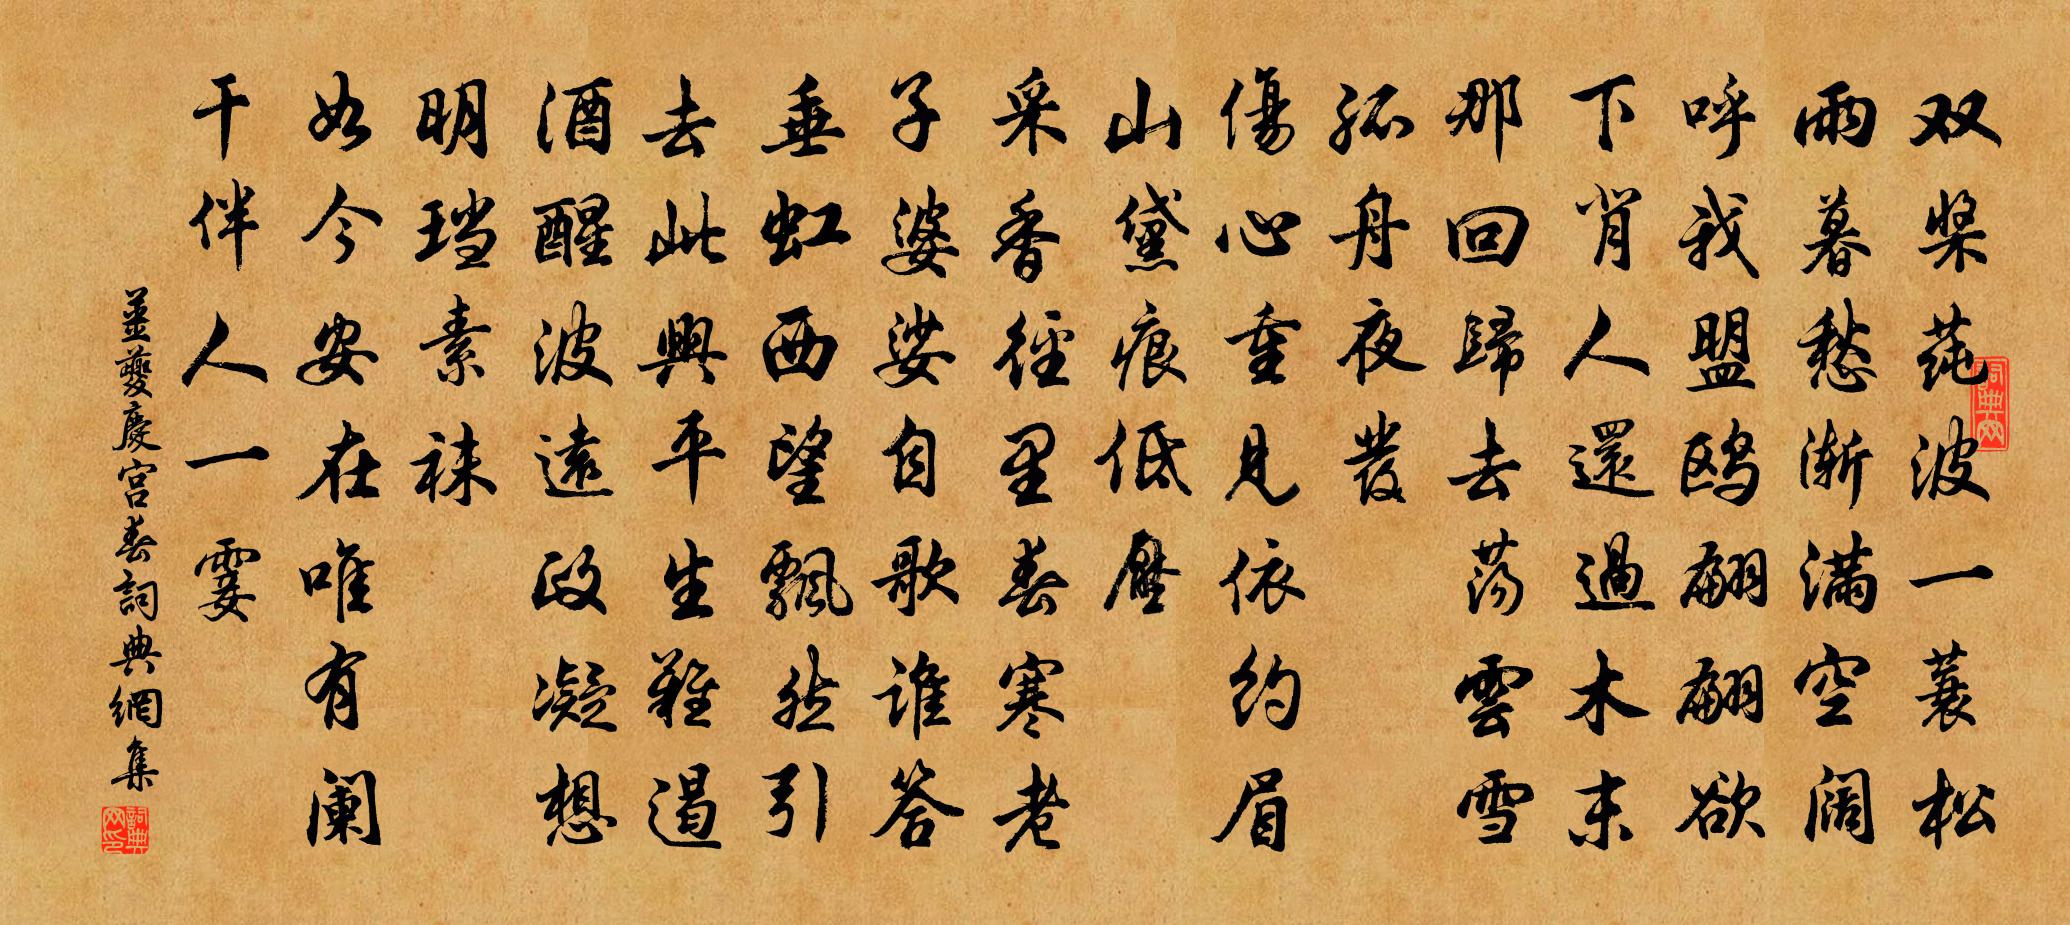 双桨莼波一蓑松
雨暮愁渐满空阔
呼我盟鸥翩翩欲
下背人還過木末
那回歸去荡雲雪
孤舟夜發
傷心重見依约眉
山黛痕低壓
采香徑里春寒老
子婆娑自歌谁答
垂虹西望飄然引
去此興平生難遏
酒醒波遠政凝想
明珰素袜
如今安在唯有阑
干伴人一霎
薑夔慶宫春詞典網集
詞典网
詞典网印